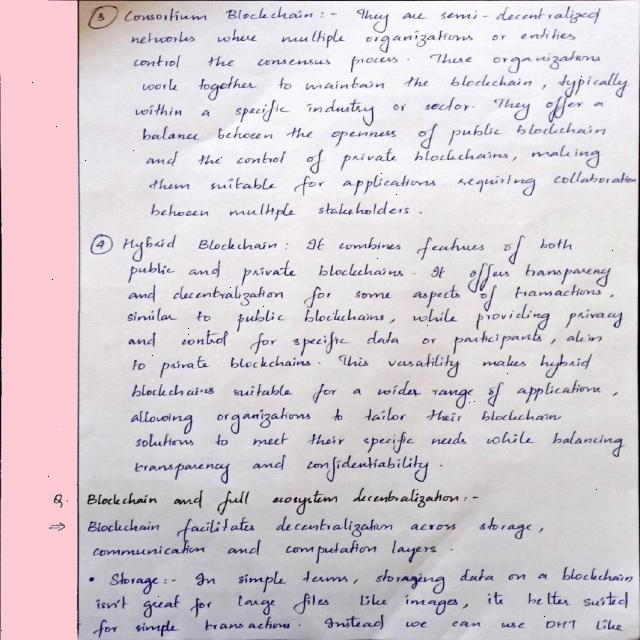 ③ Consortium Blockchain :- They are semi-decentralized
networks where multiple organizations or entities
control the consensus process. These organizations
work together to maintain the blockchain, typically
within a specific industry or sector. They offer a
balance between the openness of public blockchain
and the control of private blockchains, making
them suitable for applications requiring collaboration
between multiple stakeholders.
④ Hybrid Blockchain : It combines features of both
public and private blockchains. It offers transparency
and decentralization for some aspects of transactions,
similar to public blockchains, while providing privacy
and control for specific data or participants, akin
to private blockchains. This versatility makes hybrid
blockchains suitable for a wider range of applications,
allowing organizations to tailor their blockchain
solutions to meet their specific needs while balancing
transparency and confidentiability.
Q. Blockchain and full ecosystem decentralization :-
⇒ Blockchain facilitates decentralization across storage,
communication and computation layers.
• Storage :- In simple terms, storaging data on a blockchain
isn't great for large files like images, its better suited
for simple transactions. Instead we can use DHT like